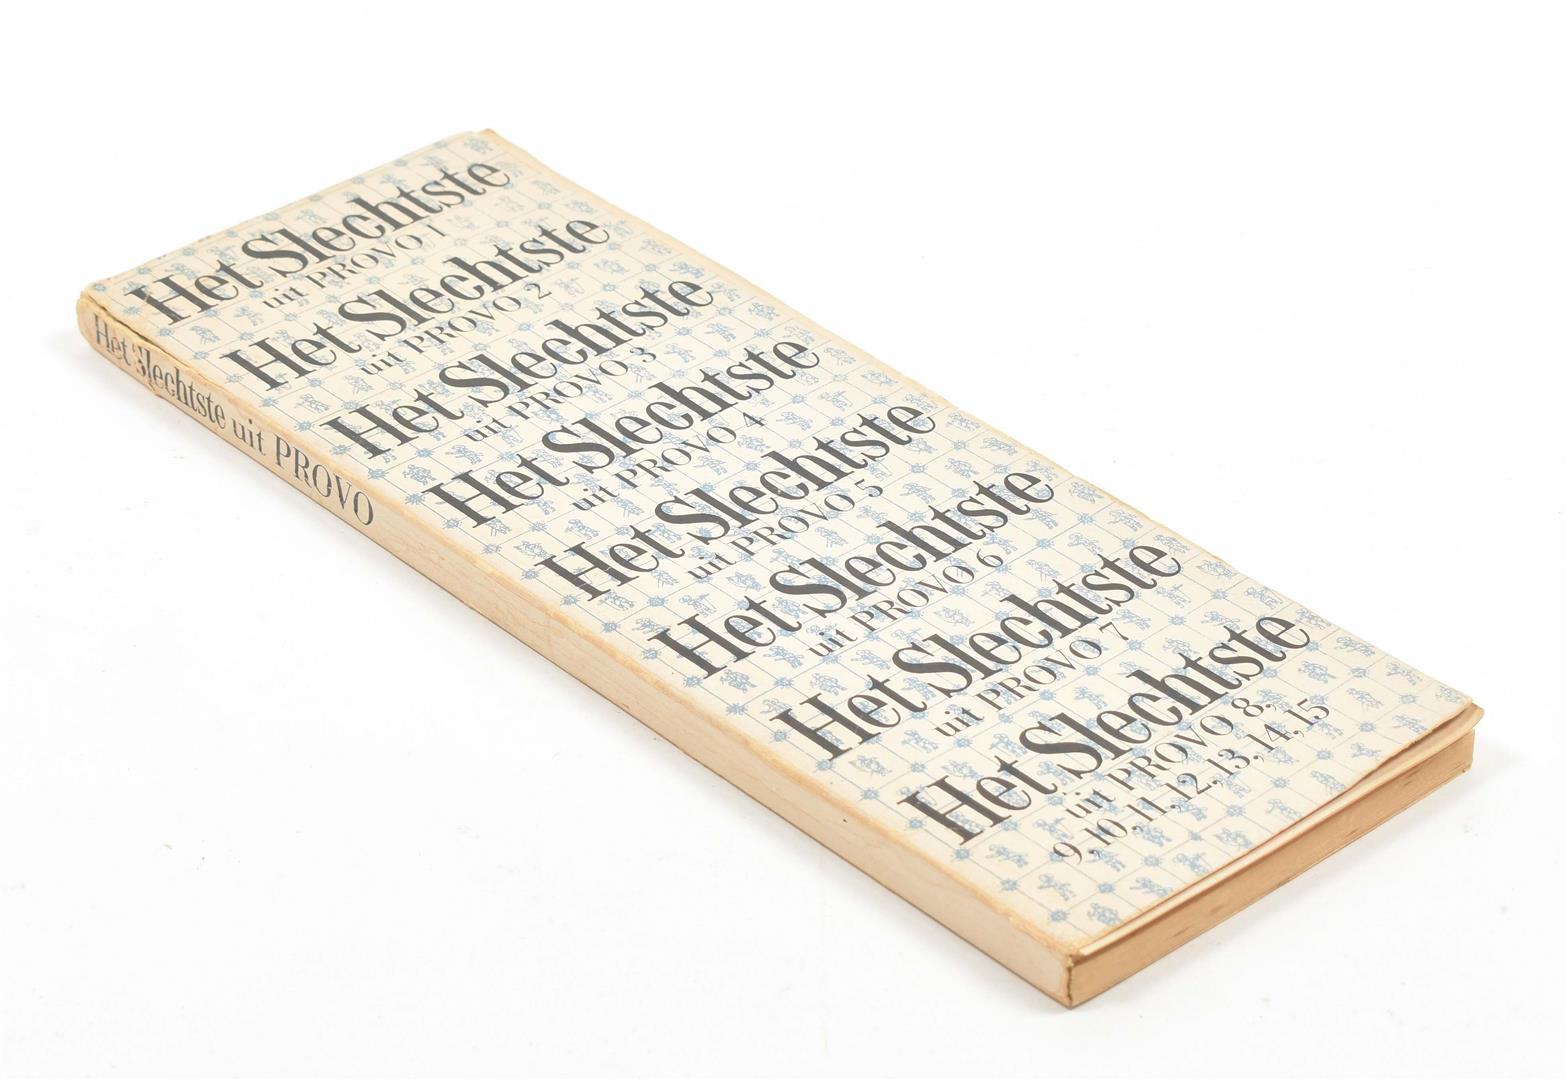 Het Slechtste
uit PROVO 1
Het Slechtste
uit PROVO 2
Het Slechtste
uit PROVO 3
Het Slechtste
uit PROVO 4
Het Slechtste
uit PROVO 5
Het Slechtste
uit PROVO 6
Het Slechtste
uit PROVO 7
Het Slechtste
uit PROVO 8,
9,10,11,12,13,14,15
Het Slechtste uit PROVO